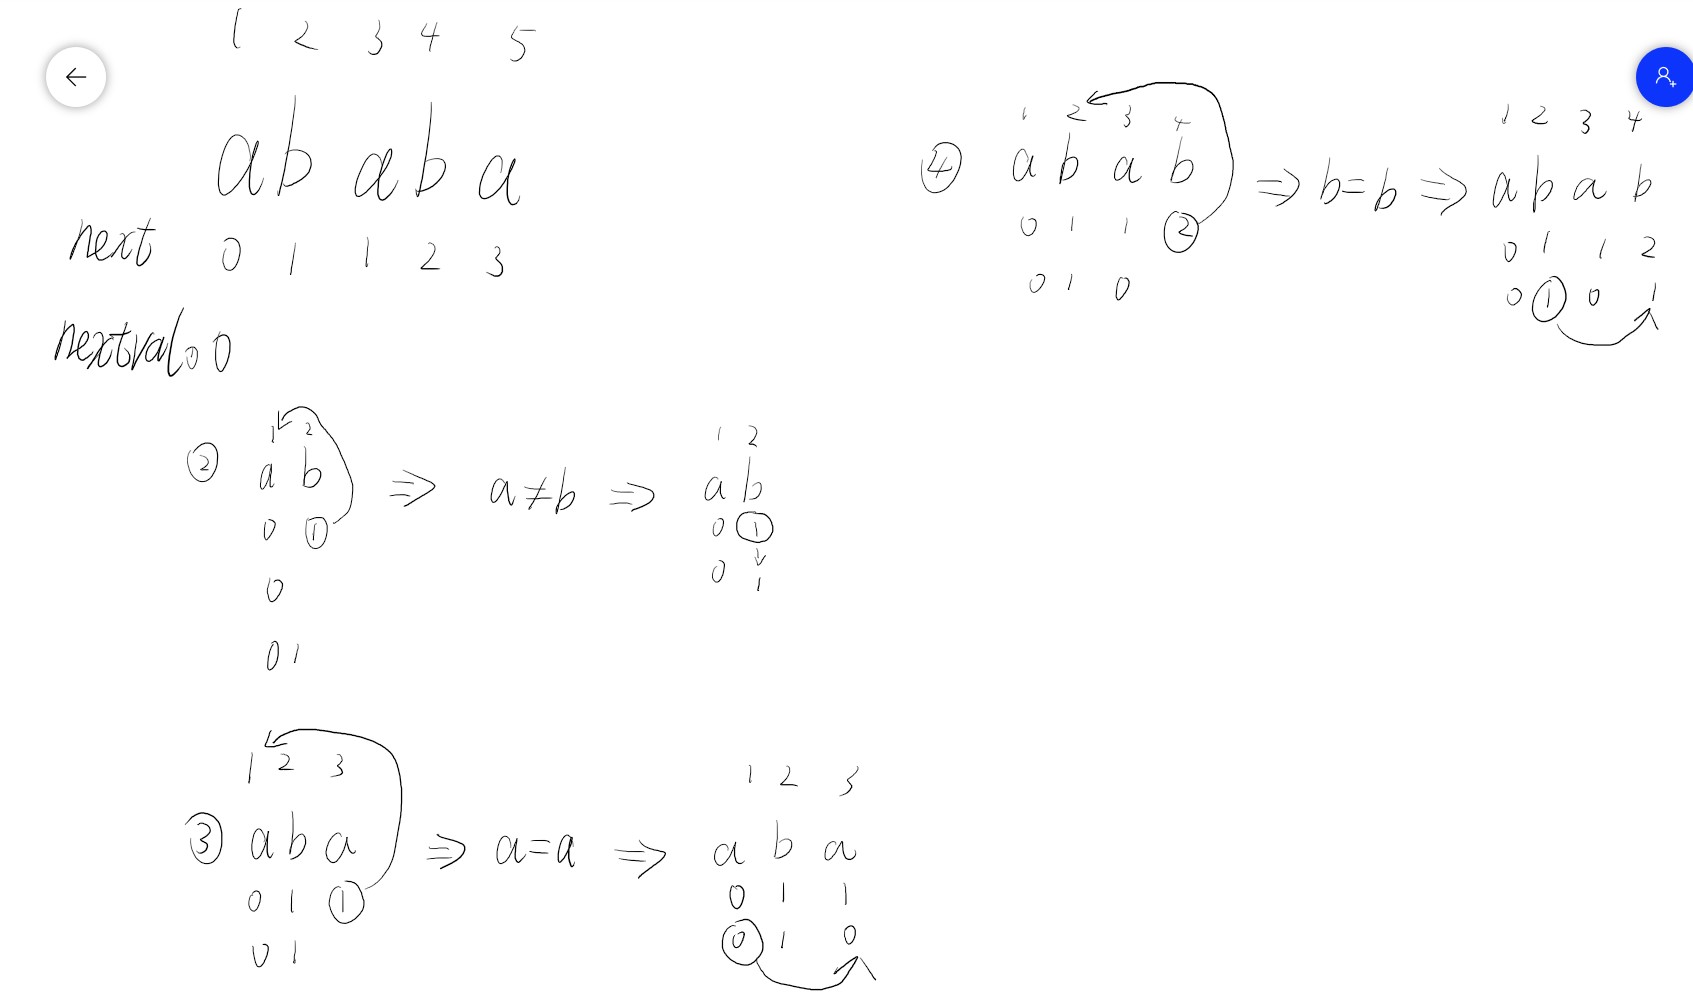 1 2 3 4 5
a b a b a
next 0 1 1 2 3
nextval 0 0
② 1 2
a b ⇒ a≠b ⇒
0 1
0
0 1
1 2
a b
0 1
0 1
③ 1 2 3
a b a ⇒ a=a ⇒
0 1 1
0 1
1 2 3
a b a
0 1 1
0 1 0
④ 1 2 3 4
a b a b ⇒ b=b ⇒
0 1 1 2
0 1 0
1 2 3 4
a b a b
0 1 1 2
0 1 0 1